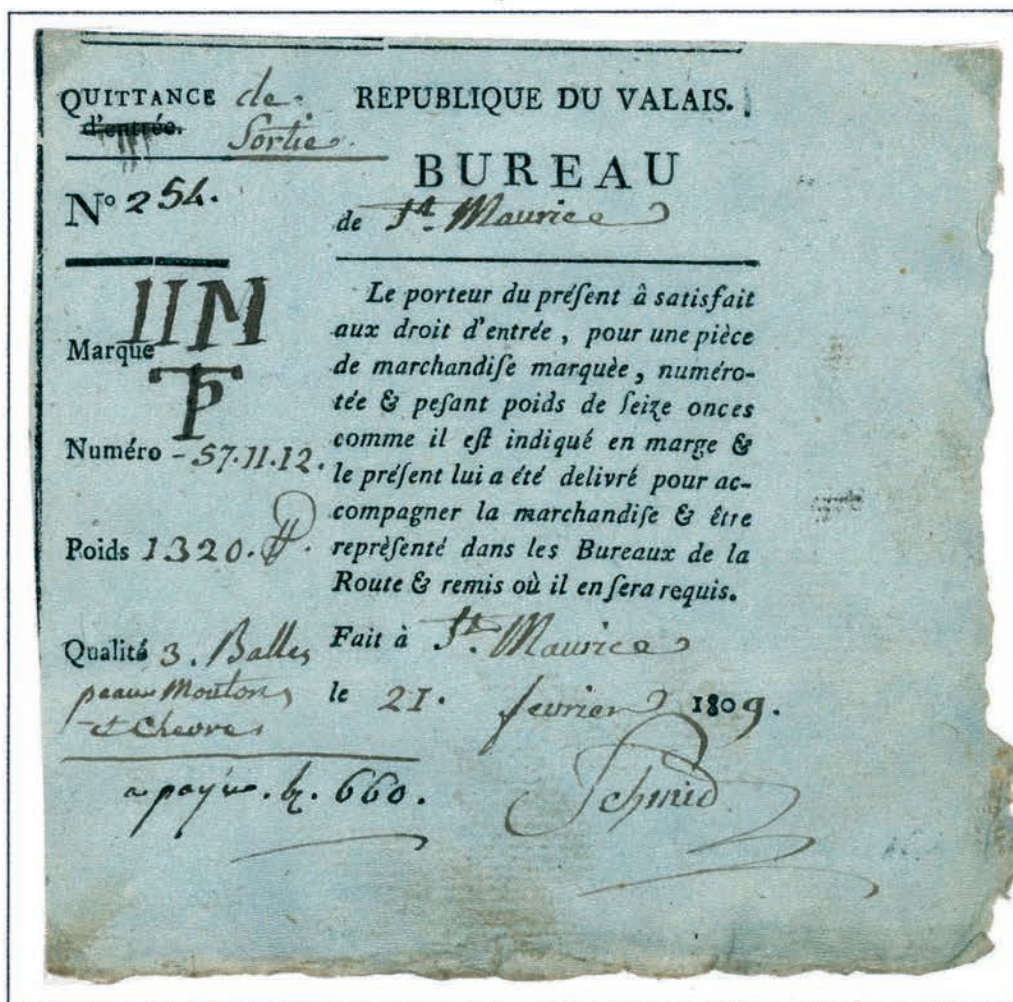 QUITTANCE de
d'entrée. Sortie.
N° 254.
Marque IIM
TP
Numéro - 57.11.12.
Poids 1320. ℔.
Qualité 3. Balles
peaux Moutons
et Chevres
a payé. bz. 660.
REPUBLIQUE DU VALAIS.
BUREAU
de St. Maurice
Le porteur du préſent â satisfait
aux droit d'entrée, pour une pièce
de marchandiſe marquèe, numéro-
tée & peſant poids de ſeize onces
comme il eſt indiqué en marge &
le préſent lui a été delivré pour ac-
compagner la marchandiſe & être
reprèſenté dans les Bureaux de la
Route & remis où il en ſera requis.
Fait à St. Maurice
le 21. fevrier 1809.
Schmid